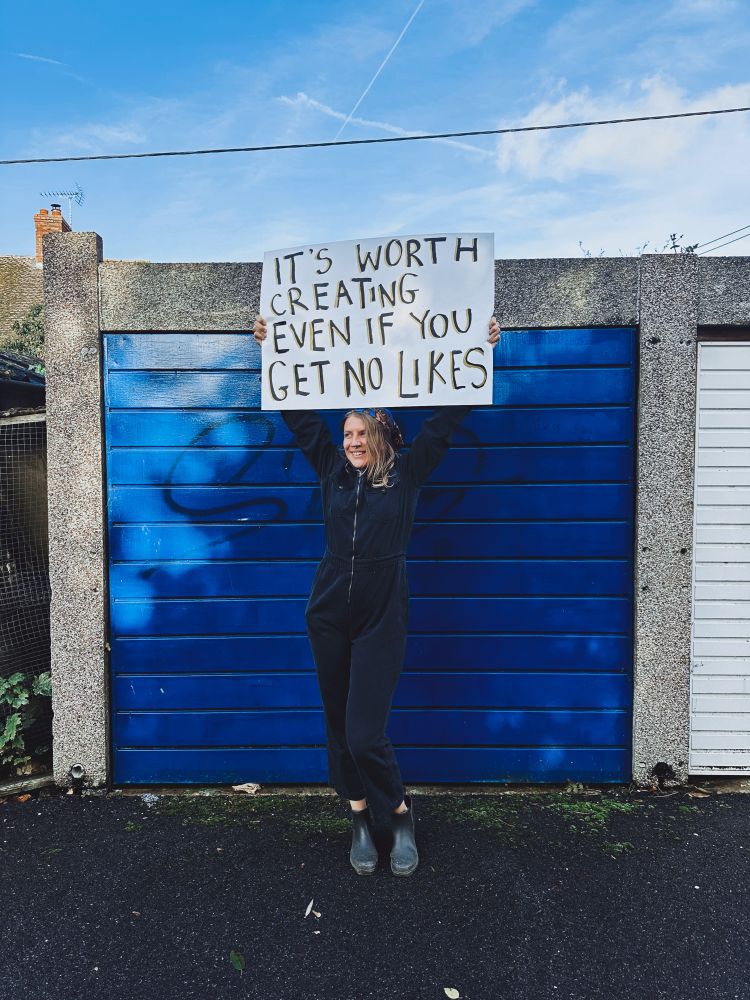 IT'S WORTH
CREATING
EVEN IF YOU
GET NO LIKES